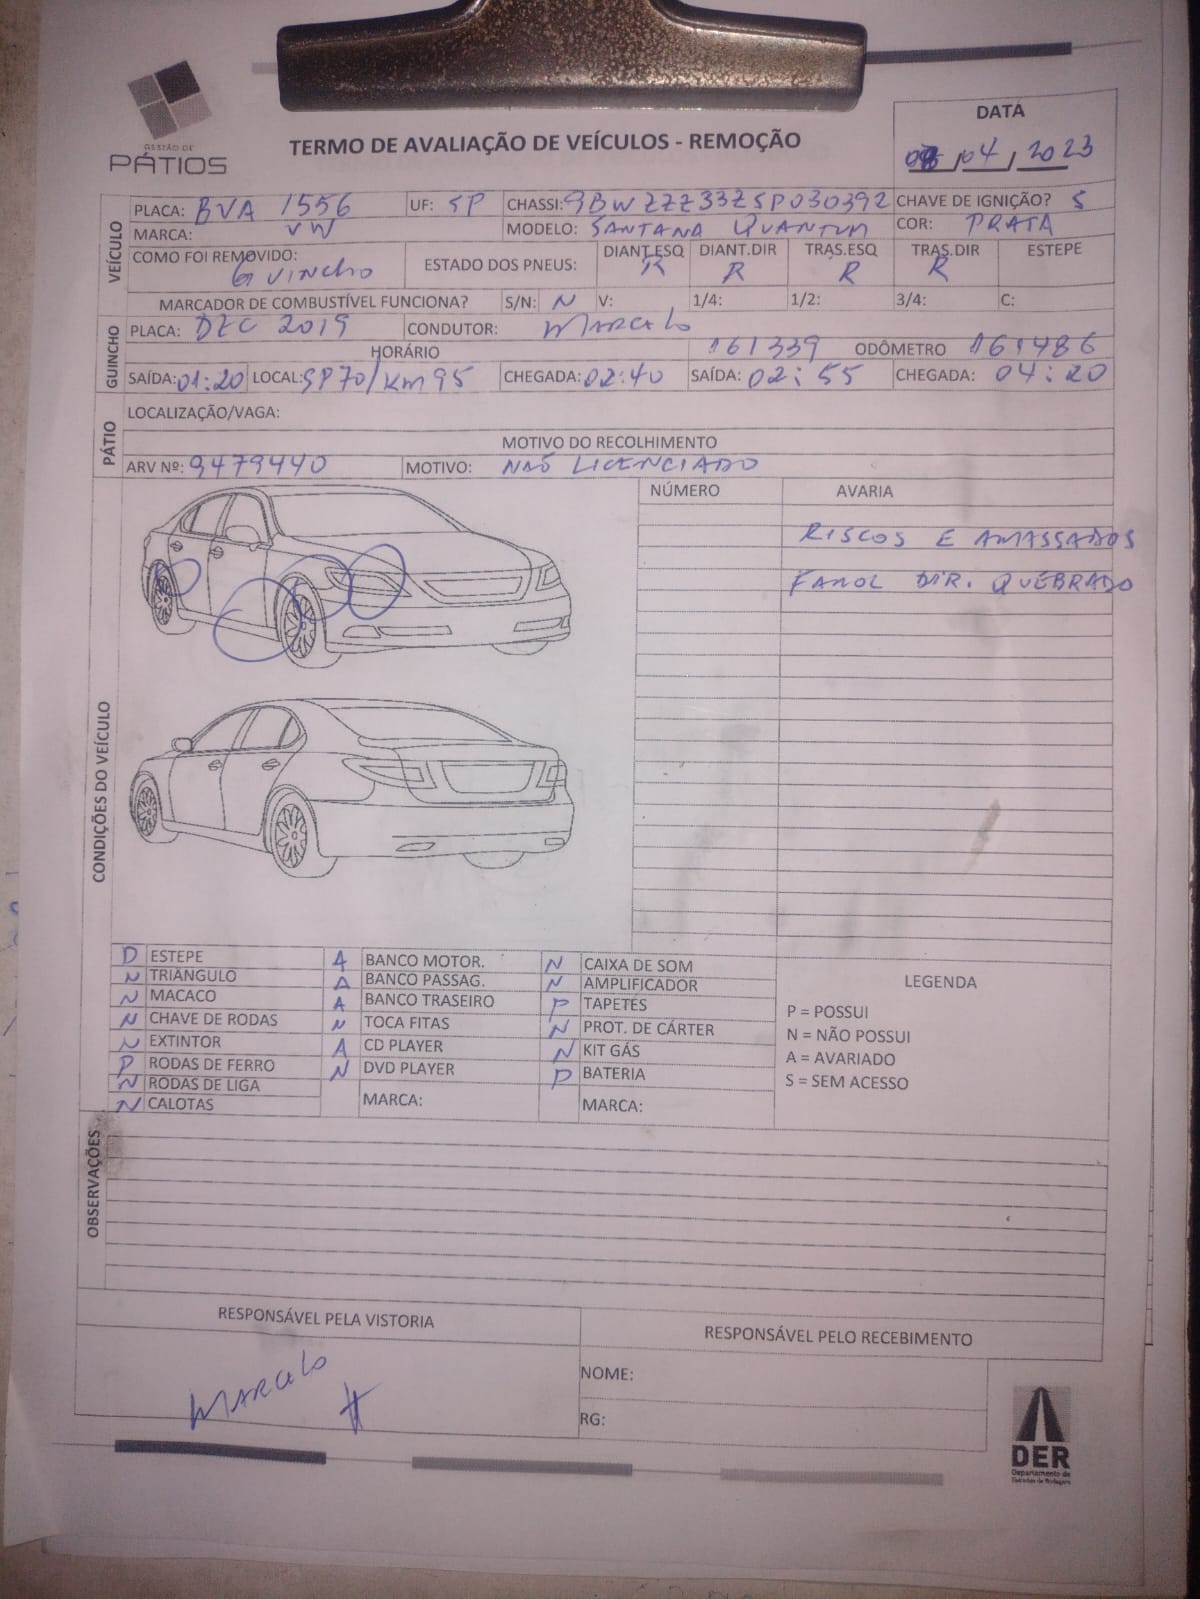 GESTÃO DE
PÁTIOS
TERMO DE AVALIAÇÃO DE VEÍCULOS - REMOÇÃO
DATA
/04/2023
VEÍCULO
PLACA: BVA 1556 UF: SP CHASSI: 9BWZZZ33ZSP030392 CHAVE DE IGNIÇÃO? S
MARCA: VW MODELO: SANTANA QUANTUM COR: PRATA
COMO FOI REMOVIDO: GUINCHO ESTADO DOS PNEUS: DIANT.ESQ R DIANT.DIR R TRAS.ESQ R TRAS.DIR R ESTEPE
MARCADOR DE COMBUSTÍVEL FUNCIONA? S/N: N V: 1/4: 1/2: 3/4: C:
GUINCHO
PLACA: DZC 2019 CONDUTOR: MARCELO
HORÁRIO 161339 ODÔMETRO 161486
SAÍDA: 01:20 LOCAL: SP70/KM95 CHEGADA: 02:40 SAÍDA: 02:55 CHEGADA: 04:20
PÁTIO
LOCALIZAÇÃO/VAGA:
MOTIVO DO RECOLHIMENTO
ARV Nº: 9479440 MOTIVO: NAÕ LICENCIADO
CONDIÇÕES DO VEÍCULO
NÚMERO AVARIA
RISCOS E AMASSADOS
FAROL DIR. QUEBRADO
D ESTEPE A BANCO MOTOR. N CAIXA DE SOM
N TRIÂNGULO A BANCO PASSAG. N AMPLIFICADOR
N MACACO A BANCO TRASEIRO P TAPETES
N CHAVE DE RODAS N TOCA FITAS N PROT. DE CÁRTER
N EXTINTOR A CD PLAYER N KIT GÁS
P RODAS DE FERRO N DVD PLAYER P BATERIA
N RODAS DE LIGA MARCA: MARCA:
N CALOTAS
LEGENDA
P = POSSUI
N = NÃO POSSUI
A = AVARIADO
S = SEM ACESSO
OBSERVAÇÕES
RESPONSÁVEL PELA VISTORIA
MARCELO
RESPONSÁVEL PELO RECEBIMENTO
NOME:
RG:
DER
Departamento de
Estradas de Rodagem